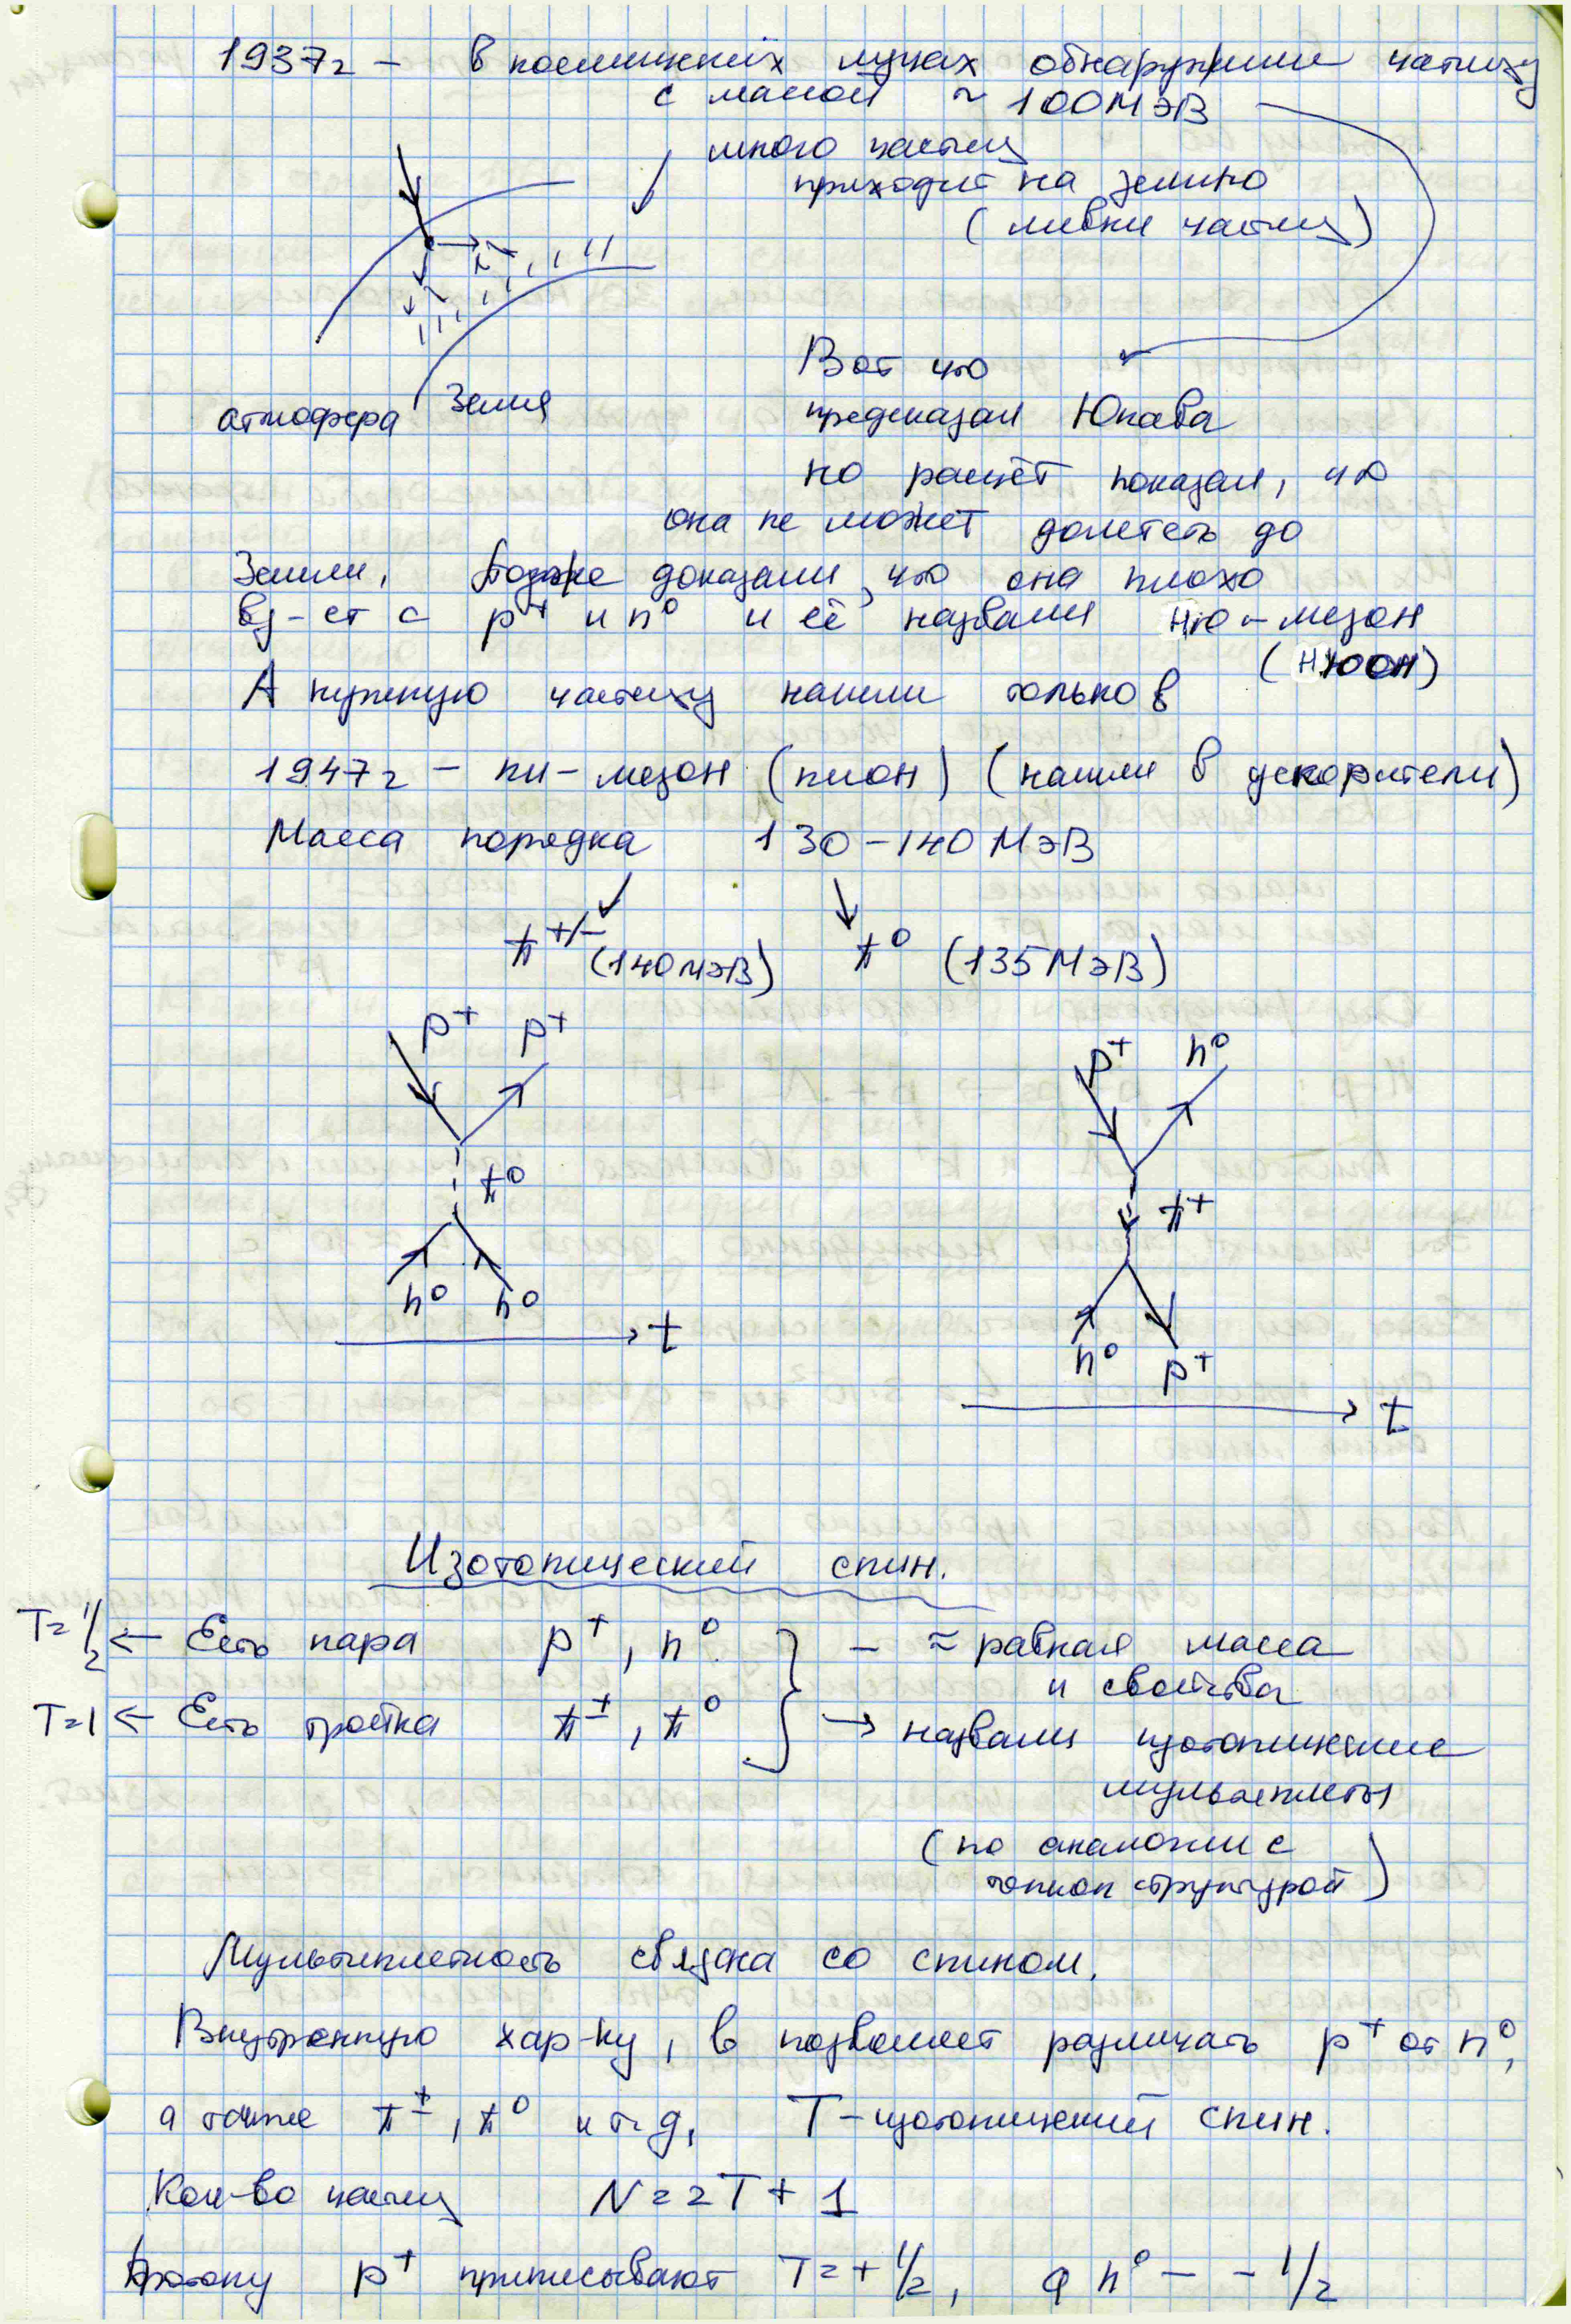 1937г – в космических лучах обнаружили частицу
с массой ~ 100МэВ
много частиц
приходит на землю
(ливни частиц)
атмофера Земля
Вот что
предсказал Юкава
но расчёт показал, что
она не может долететь до
Земли, позже доказали, что она плохо
вз-ет с p⁺ и n⁰ и её назвали Ню-мезон
(НЮОН)
А нужную частицу нашли только в
1947г – пи-мезон (пион) (нашли в ускорители)
Масса порядка 130-140МэВ
π⁺/⁻ (140МэВ) π⁰ (135МэВ)
p⁺ p⁺
π⁰
n⁰ n⁰
t
p⁺ n⁰
π⁺
n⁰ p⁺
t
Изотопический спин.
T=1/2 ← Есть пара p⁺, n⁰ – ≈ равная масса
и свойства
T=1 ← Есть тройка π±, π⁰ → назвали изотопические
мультиплеты
(по аналогии с
тонкой структурой)
Мультиплетность связана со спином.
Внутреннюю хар-ку, в позволяет различать p⁺ от n⁰,
а также π±, π⁰ и т.д, T-изотопический спин.
Кол-во частиц N=2T+1
Протону p⁺ приписывают T=+1/2, а n⁰ – -1/2